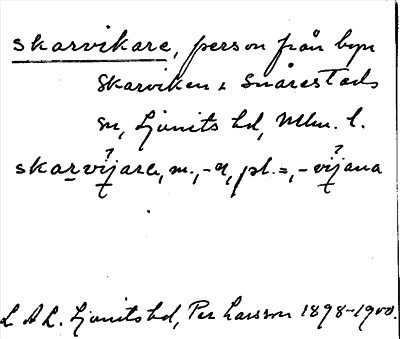 skarvikare, person från byn
Skarviken i Snårestads
sn, Ljunits hd, Mlm. l.
skarvijare, m., -n, pl. =, -vijana
? ?
L A L. Ljunits hd, Per Larsson 1898-1900.